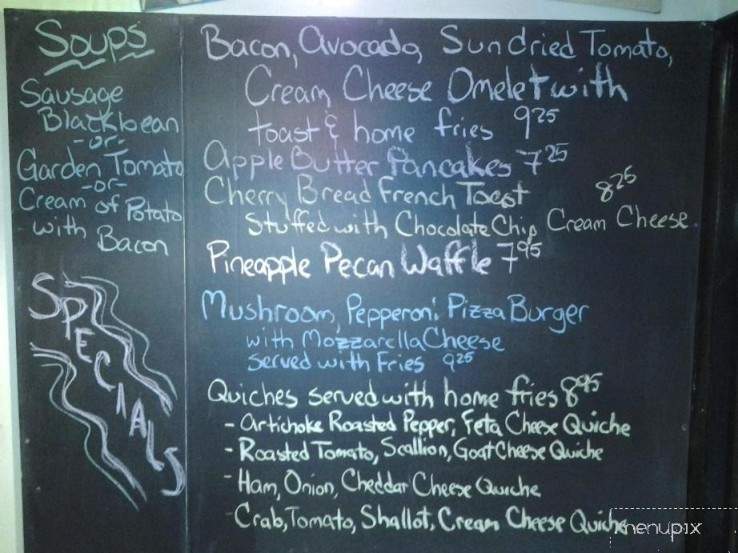 Soups
Sausage
Blackbean
-or-
Garden Tomato
-or-
Cream of Potato
with Bacon
SPECIALS
Bacon, Avocado, Sundried Tomato,
Cream Cheese Omelet with
toast & home fries 9.25
Apple Butter Pancakes 7.25
Cherry Bread French Toast 8.25
Stuffed with Chocolate Chip Cream Cheese
Pineapple Pecan Waffle 7.95
Mushroom, Pepperoni Pizza Burger
with Mozzarella Cheese
Served with Fries 9.25
Quiches served with home fries 8.95
- Artichoke Roasted Pepper, Feta Cheese Quiche
- Roasted Tomato, Scallion, Goat Cheese Quiche
- Ham, Onion, Cheddar Cheese Quiche
- Crab, Tomato, Shallot, Cream Cheese Quiche
menupix